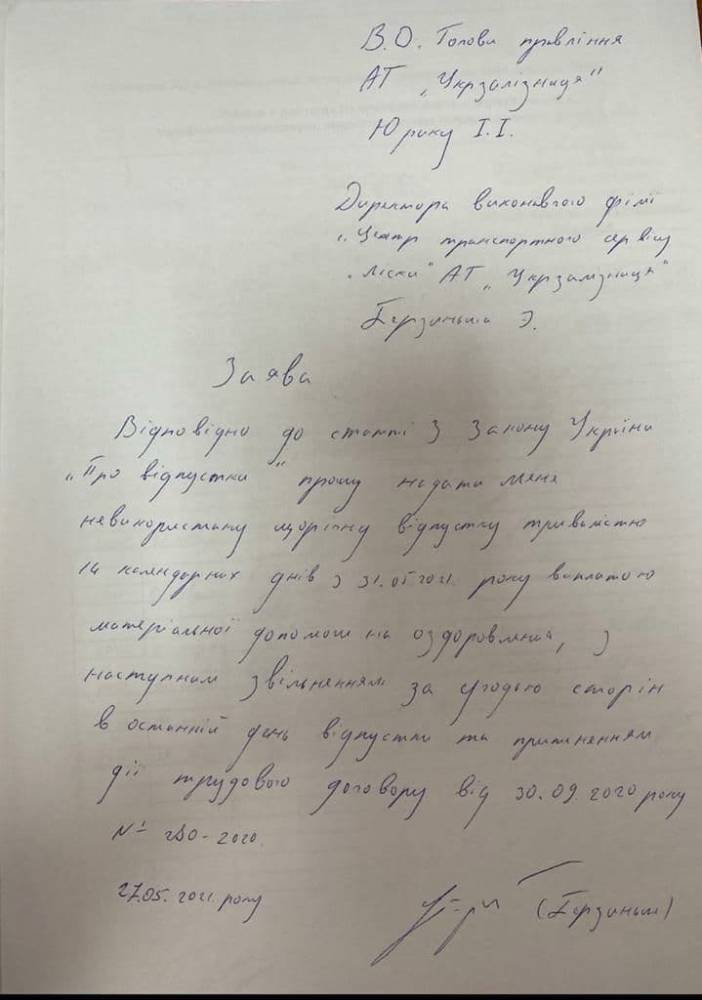 В.О. Голови правління
АТ „Укрзалізниця"
Юрику І.І.
Директора виконавчого філії
„Центр транспортного сервісу
„Ліски" АТ „Укрзалізниця"
Берзиньша Э.
Заява
Відповідно до статті 3 Закону України
„Про відпустки" прошу надати мене
невикористану щорічну відпустку тривалістю
14 календарних днів з 31.05.2021 року виплатою
матеріальної допомоги на оздоровлення, з
наступним звільненням за згодою сторін
в останній день відпустки та припиненням
дії трудового договору від 30.09.2020 року
№ 280-2020.
27.05.2021 року
(Берзиньш)